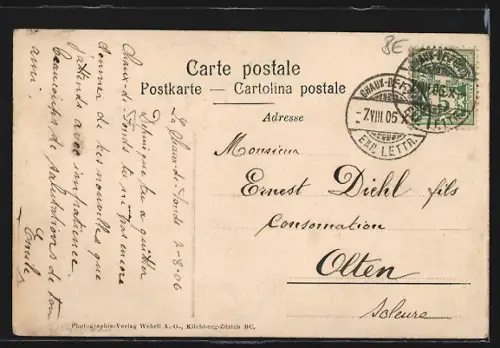 8E
Carte postale
Postkarte — Cartolina postale
Adresse
CHAUX-DE-FONDS
-7.VIII.06
EXP. LETTR.
5
Monsieur
Ernest Diehl fils
Consomation
Olten
Soleure
La Chaux-de-Fonds 7-8-06
Depuis que tu a quitter
Chaux-de-Fonds tu ne pas encore
donner de tes nouvelles que
j'attends avec impatience.
beaucoup de salutations de ton
ami. Emile
Photographie-Verlag Wehrli A.-G., Kilchberg-Zürich BC.